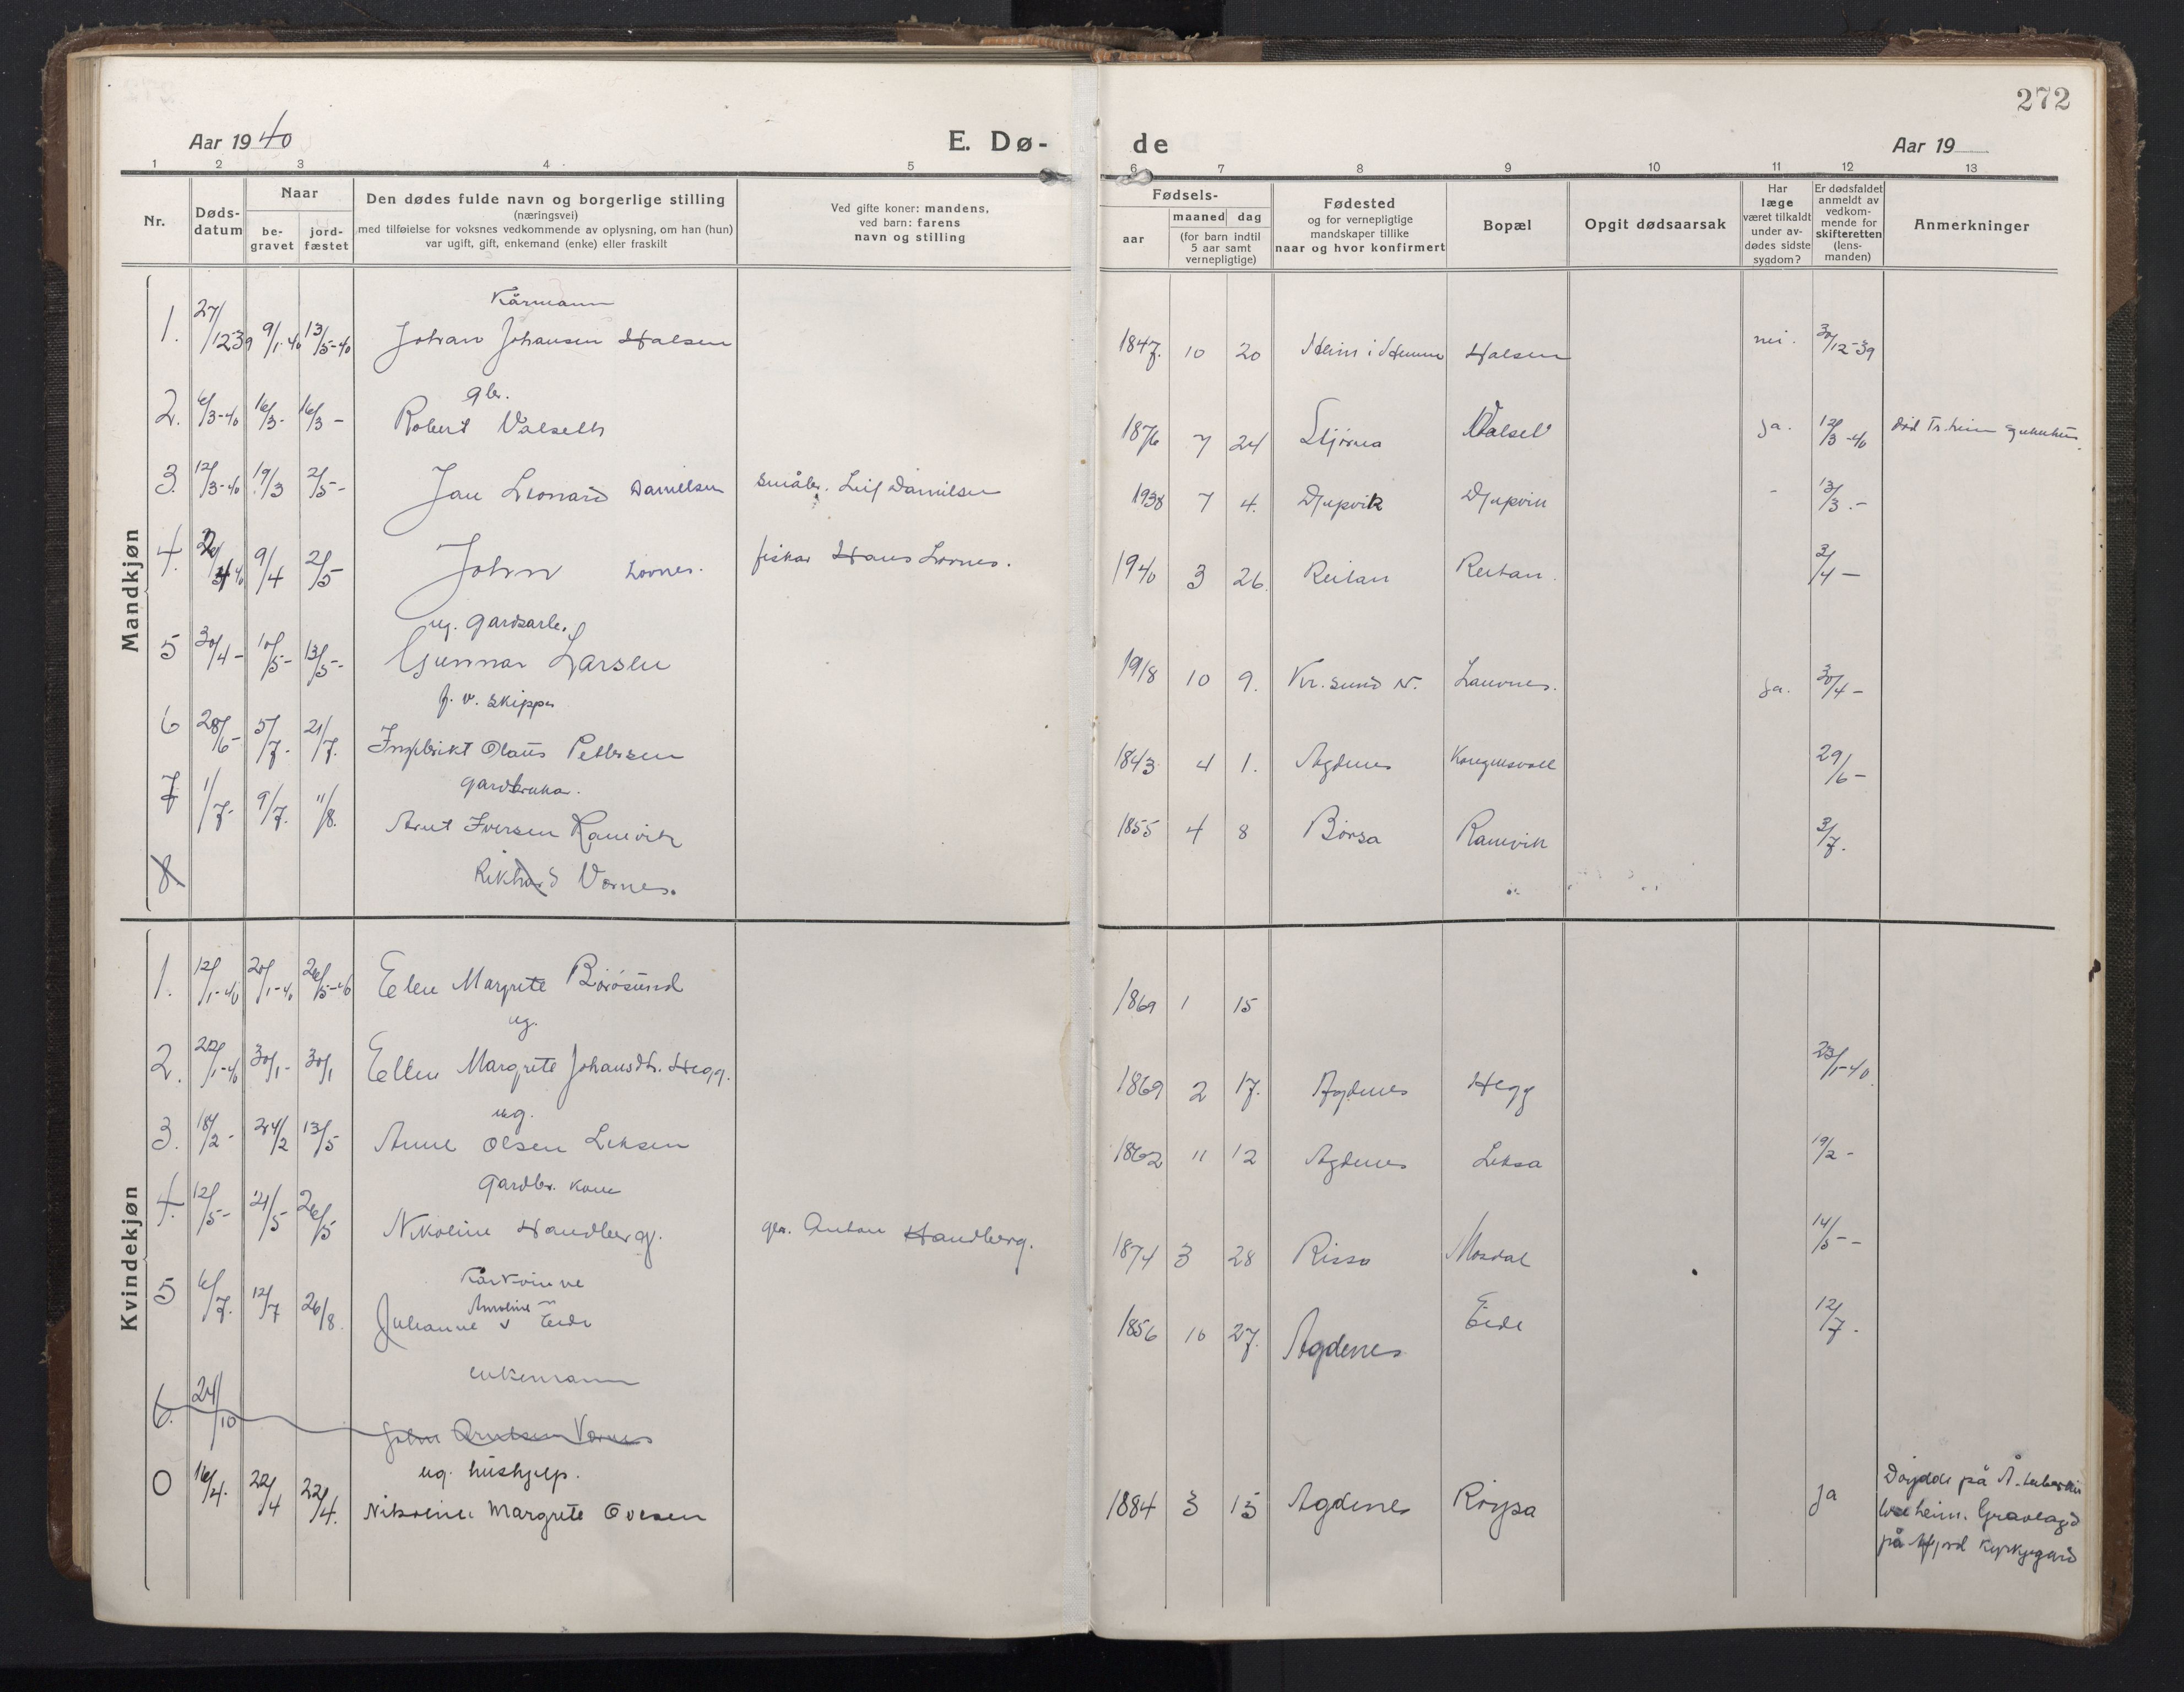 272
Aar 1940
E. Dø-
de
Aar 19
1 2 3 4 5 6 7 8 9 10 11 12 13
Nr.
Døds-
datum
Naar
be-
gravet
jord-
fæstet
Den dødes fulde navn og borgerlige stilling
(næringsvei)
med tilføielse for voksnes vedkommende av oplysning, om han (hun)
var ugift, gift, enkemand (enke) eller fraskilt
Ved gifte koner: mandens,
ved barn: farens
navn og stilling
Fødsels-
aar
maaned dag
(for barn indtil
5 aar samt
vernepligtige)
Fødested
og for vernepligtige
mandskaper tillike
naar og hvor konfirmert
Bopæl
Opgit dødsaarsak
Har
læge
været tilkaldt
under av-
dødes sidste
sygdom?
Er dødsfaldet
anmeldt av
vedkom-
mende for
skifteretten
(lens-
manden)
Anmerkninger
Mandkjøn
Kårmann
1. 27/12 39 9/1-40 13/5-40 Johan Johansen Halsen 1847. 10 20 Heim i Hemne Halsen nei. 30/12-39
gbr.
2. 6/3-40 16/3- 16/3- Robert Valseth 1876 7 24 Stjørna Valset ja. 12/3-40 død Tr.heim sjukehus.
3. 12/3-40 19/3 2/5- Jan Leonard Danielsen småbr. Leif Danielsen 1938 7 4. Djupvik Djupvik - 13/3.-
4. 9/4 2/5 John Lovnes. fisker Hans Lovnes. 1940 3 26. Reitan Reitan. 3/4-
ug. gardsarb.
5 30/4- 10/5- 13/5- Gunnar Larsen 1918 10 9. Kr. sund N. Lauvnes. ja. 30/4-
f. v. skipper
6 28/6- 5/7- 21/7. Ingebrikt Olaus Pettersen 1843 4 1. Agdenes 29/6-
gardbruker.
7 1/7- 9/7. 11/8. Arnt Iversen Ramvik 1855 4 8 Børsa Ramvik 3/7.
8 Rikhard Vernes.
Kvindekjøn
1. 12/1-40 20/1-40 26/5-40 Elen Margrete Børøsund 1869 1 15
ug.
2. 22/1-40 30/1- 30/1 Ellen Margrete Johansdtr. Hegg. 1869 2 17. Agdenes Hegg 23/1-40.
ug.
3. 18/2- 24/2 13/5 Anne Olsen Leksen 1862 11 12 Agdenes Leksa 19/2-
Gardbr. kone
4. 12/5- 21/5 26/5 Nikoline Handberg. gbr. Anton Handberg. 1874 3 28 Rissa Mosdal 14/5-
Kårkvinne
Amoline
5 6/7. 12/7 26/8. Julianne v Eide 1856 10 27. Agdenes Eide 12/7.
enkemann
6. 24/10 John Arntsen Vernes
ug. hushjelp.
0 16/4. 22/4 22/4. Nikoline Margrete Ovesen 1884 3 15 Agdenes Røysa ja Døydde på Å. tuberku
loseheim. Gravlagd
på Åfjord kyrkjegard